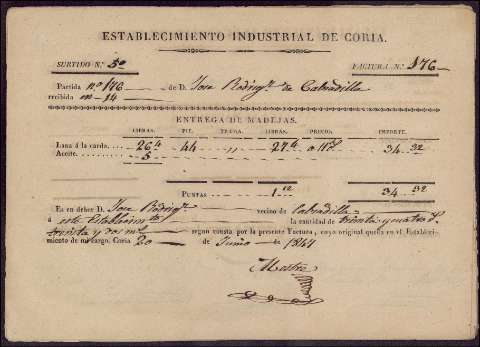 ESTABLECIMIENTO INDUSTRIAL DE CORIA.
SURTIDO N.º 5º FACTURA N.º 176
Partida nº 176 de D. Jose Rodrigz. de Calzadilla
recibida en 14
ENTREGA DE MADEJAS.
LIBRAS. PIE. TRAMA. LIBRAS. PRECIO. IMPORTE.
Lana á la carda. 26 44 " 27 34 32
Aceite. 5
PUNTAS 1 12 34 32
Es en deber D. Jose Rodrigz. vecino de Calzadilla
á este Establecimto. la cantidad de treinta y cuatro
treinta y dos segun consta por la presente Factura, cuyo original queda en el Estableci-
miento de mi cargo. Coria 20 de Junio de 1847